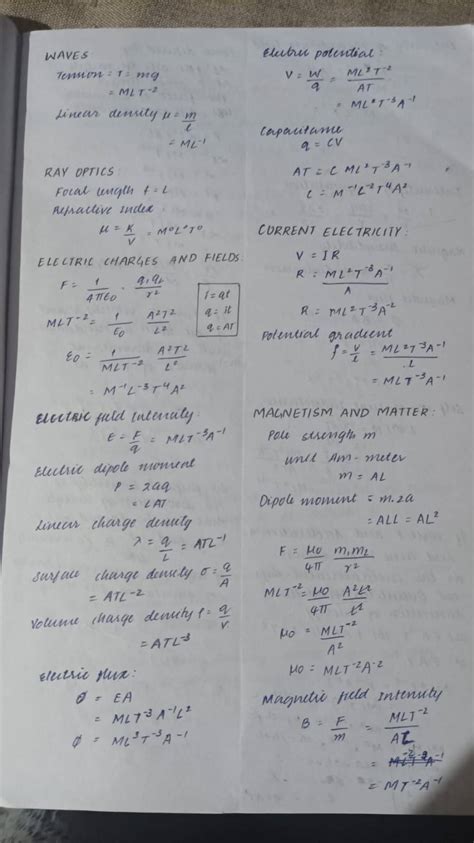 WAVES
Tension = T = mg
= MLT⁻²
Linear density μ = m/l
= ML⁻¹
RAY OPTICS:
Focal length f = L
Refractive index
μ = c/v = M⁰L⁰T⁰
ELECTRIC CHARGES AND FIELDS:
F = 1/4πε₀ · q₁q₂/r²
MLT⁻² = 1/ε₀ A²T²/L²
I = qt
q = it
q = AT
ε₀ = 1/MLT⁻² A²T²/L²
= M⁻¹L⁻³T⁴A²
ELECTRIC field intensity:
E = F/q = MLT⁻³A⁻¹
Electric dipole moment
P = 2aq
= LAT
Linear charge density
λ = q/L = ATL⁻¹
Surface charge density σ = q/A
= ATL⁻²
Volume charge density ρ = q/V
= ATL⁻³
Electric flux:
Ø = EA
= MLT⁻³A⁻¹L²
Ø = ML³T⁻³A⁻¹
Electric potential:
V = W/q = ML²T⁻²/AT
= ML²T⁻³A⁻¹
Capacitance
q = CV
AT = C ML²T⁻³A⁻¹
C = M⁻¹L⁻²T⁴A²
CURRENT ELECTRICITY:
V = IR
R = ML²T⁻³A⁻¹/A
R = ML²T⁻³A⁻²
Potential gradient
f = V/l = ML²T⁻³A⁻¹/L
= MLT⁻³A⁻¹
MAGNETISM AND MATTER:
Pole strength m
unit Am-meter
m = AL
Dipole moment = m.2a
= ALL = AL²
F = μ₀/4π m₁m₂/r²
MLT⁻² = μ₀/4π A²L²/L²
μ₀ = MLT⁻²/A²
μ₀ = MLT⁻²A⁻²
Magnetic field intensity
B = F/m = MLT⁻²/AL
= MT⁻²A⁻¹